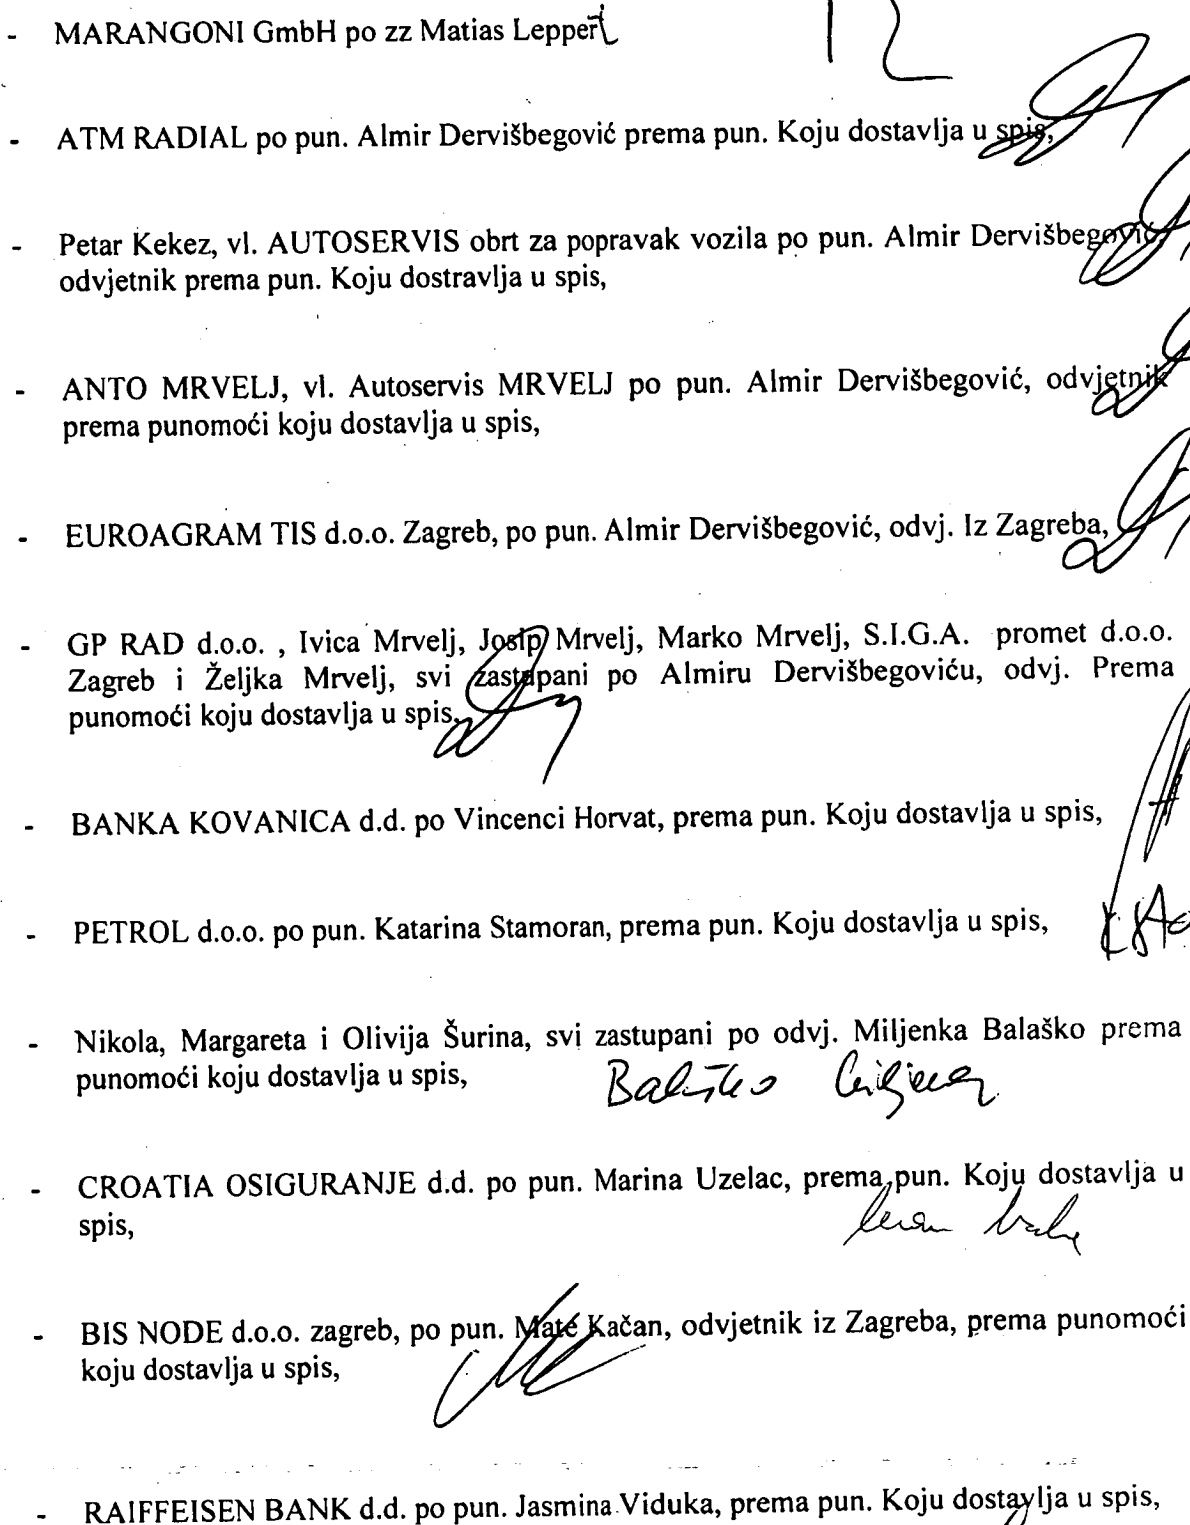 - MARANGONI GmbH po zz Matias Leppert
- ATM RADIAL po pun. Almir Dervišbegović prema pun. Koju dostavlja u spis,
- Petar Kekez, vl. AUTOSERVIS obrt za popravak vozila po pun. Almir Dervišbegović,
odvjetnik prema pun. Koju dostravlja u spis,
- ANTO MRVELJ, vl. Autoservis MRVELJ po pun. Almir Dervišbegović, odvjetnik
prema punomoći koju dostavlja u spis,
- EUROAGRAM TIS d.o.o. Zagreb, po pun. Almir Dervišbegović, odvj. Iz Zagreba,
- GP RAD d.o.o. , Ivica Mrvelj, Josip Mrvelj, Marko Mrvelj, S.I.G.A. promet d.o.o.
Zagreb i Željka Mrvelj, svi zastupani po Almiru Dervišbegoviću, odvj. Prema
punomoći koju dostavlja u spis,
- BANKA KOVANICA d.d. po Vincenci Horvat, prema pun. Koju dostavlja u spis,
- PETROL d.o.o. po pun. Katarina Stamoran, prema pun. Koju dostavlja u spis,
- Nikola, Margareta i Olivija Šurina, svi zastupani po odvj. Miljenka Balaško prema
punomoći koju dostavlja u spis,
Balaško
- CROATIA OSIGURANJE d.d. po pun. Marina Uzelac, prema pun. Koju dostavlja u
spis,
- BIS NODE d.o.o. zagreb, po pun. Mate Kačan, odvjetnik iz Zagreba, prema punomoći
koju dostavlja u spis,
- RAIFFEISEN BANK d.d. po pun. Jasmina Viduka, prema pun. Koju dostavlja u spis,